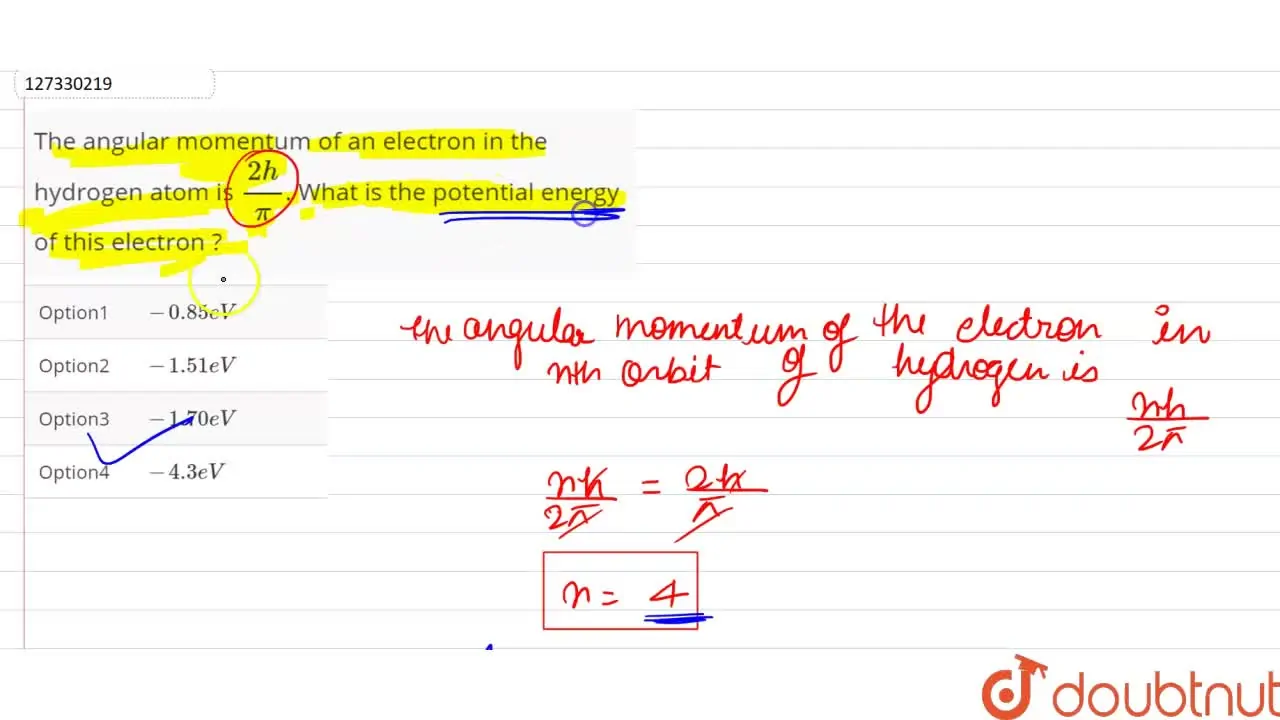 127330219
The angular momentum of an electron in the
hydrogen atom is 2h/π. What is the potential energy
of this electron ?
Option1 −0.85eV
Option2 −1.51eV
Option3 −1.70eV
Option4 −4.3eV
the angular momentum of the electron in
nth orbit of hydrogen is
nh/2π
nh/2π = 2h/π
n = 4
doubtnut